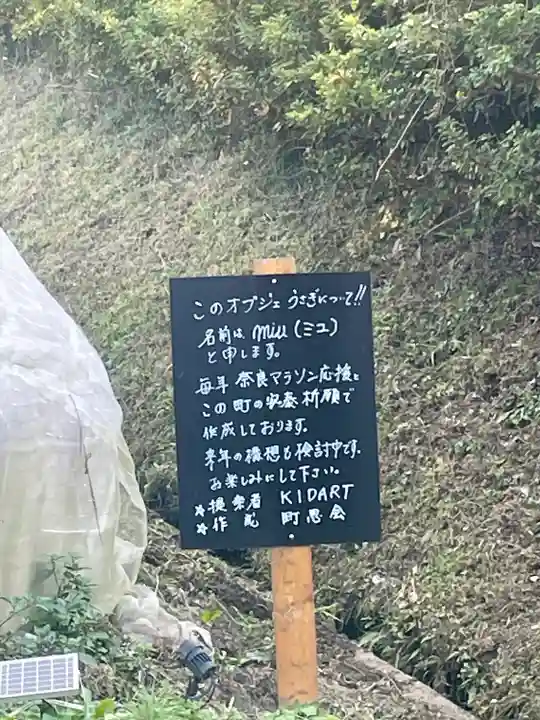 このオブジェ うさぎについて!!
名前は miu (ミユ)
と申します。
毎年 奈良マラソン応援と
この町の安泰祈願で
作成しております。
来年の構想も検討中です。
お楽しみにして下さい。
★提案者 KIDART
★作成 町思会